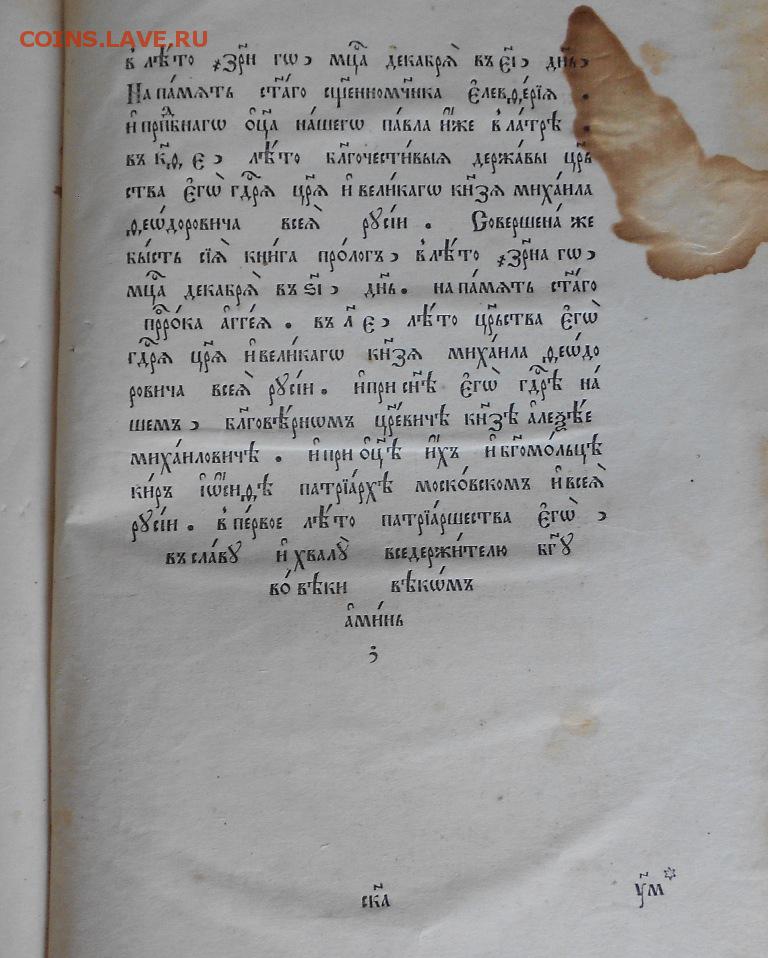 COINS.LAVE.RU
в лѣ́то ҂зр҃н гѡ, мцⷭ҇а декабрѧ̀ въ є҃і, дн҃ь,
На па́мѧть ст҃а́го сщ҃енномчн҃ика є҆леѵѳе́рїѧ .
и҆ прпⷣбнагѡ ѻ҆ц҃а на́шегѡ па́вла и҆́же в ла́трѣ .
въ к҃ѳ, є, лѣ́то бл҃гочести́выѧ держа́вы црⷭ҇ь
ства є҆гѡ̀ гдⷭ҇рѧ цр҃ѧ и҆ вели́кагѡ кн҃зѧ миха́ила
ѳео́дѡровича всеѧ̀ рꙋсі́и . Соверше́на же
бы́сть сїѧ̀ кни́га проло́гъ, в лѣ́то ҂зр҃на гѡ,
мцⷭ҇а декабрѧ̀ въ ѕ҃і, дн҃ь. на па́мѧть ст҃а́го
прⷪ҇ро́ка а҆гге́ѧ . въ л҃ є, лѣ́то црⷭ҇ьства є҆гѡ̀
гдⷭ҇рѧ цр҃ѧ и҆ вели́кагѡ кн҃зѧ миха́ила ѳео́дѡ
ровича всеѧ̀ рꙋсі́и . и҆ при сн҃ѣ є҆гѡ̀ гдⷭ҇рѣ на́
шемъ, бл҃говѣ́рномъ цр҃е́вичѣ кн҃зѣ а҆леѯѣ́е
миха́иловичѣ . и҆ при ѻ҆ц҃ѣ и҆́хъ и҆ бг҃омо́льцѣ
ки́ръ і҆ѡ́сиѳѣ патрїа́рхѣ моско́вскомъ и҆ всеѧ̀
рꙋсі́и . в пе́рвое лѣ́то патрїа́ршества є҆гѡ̀,
въ сла́вꙋ и҆ хвалꙋ̀ вседержи́телю бг҃ꙋ
во́ вѣки вѣкѡ́мъ
а҆ми́нь
ск҃а
ꙋ҃м*